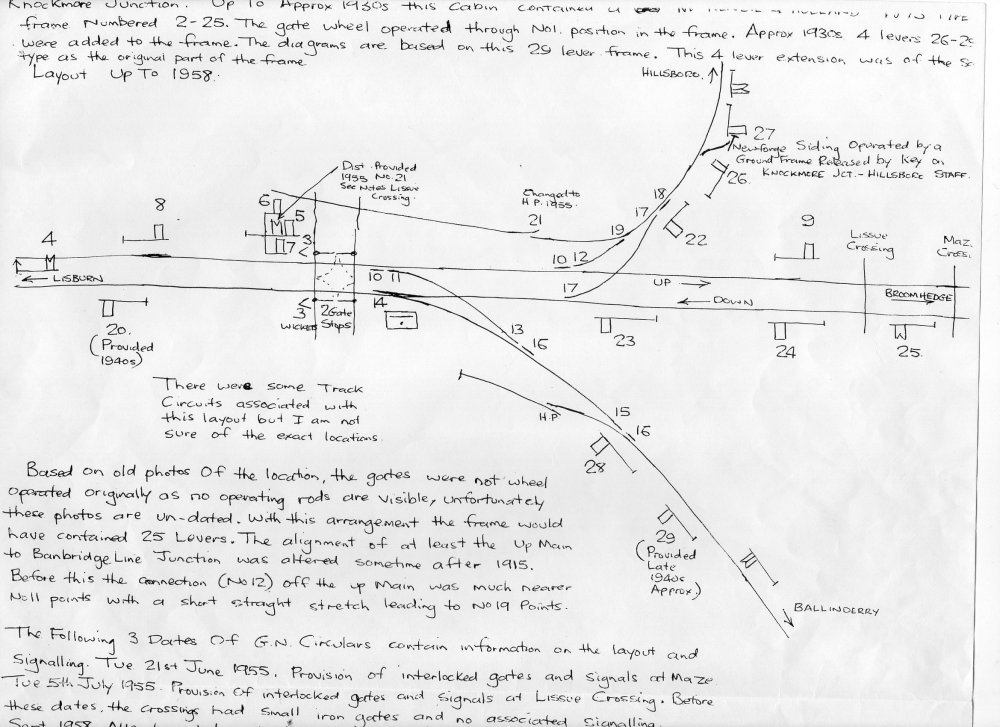 Knockmore Junction. Up To Approx 1930s this Cabin contained a
frame Numbered 2-25. The gate wheel operated through No1. position in the frame. Approx 1930s 4 levers 26-29
were added to the frame. The diagrams are based on this 29 lever frame. This 4 lever extension was of the
type as the original part of the frame
Layout Up To 1958.
HILLSBORO.
27
Newforge Siding Operated by a
Ground Frame Released by Key on
KNOCKMORE JCT. - HILLSBORO STAFF.
26
Dist. Provided
1955 No. 21
See Notes Lissue
Crossing.
Changed to
H.P. 1955.
21
18
17
19
22
10 12
17
6
5
7
8
4
9
Lissue
Crossing
Maze
Cross.
LISBURN
UP
DOWN
BROOMHEDGE
3
2
10 11
14
3
WICKETS
2 Gate
Stops
20.
(Provided
1940s)
23
24
25.
13
16
H.P.
15
16
28
29
(Provided
Late
1940s
Approx.)
BALLINDERRY
There were some Track
Circuits associated with
this layout but I am not
sure of the exact locations.
Based on old photos Of the location, the gates were not wheel
operated originally as no operating rods are visible, unfortunately
these photos are un-dated. With this arrangement the frame would
have contained 25 Levers. The alignment of at least the Up Main
to Banbridge Line Junction was altered sometime after 1915.
Before this the connection (No12) off the up Main was much nearer
No11 points with a short straight stretch leading to No19 Points.
The Following 3 Dates Of G.N. Circulars contain information on the layout and
Signalling. Tue 21st June 1955. Provision of interlocked gates and signals at Maze
Tue 5th July 1955. Provision of interlocked gates and signals at Lissue Crossing. Before
these dates, the crossings had small iron gates and no associated Signalling.
Sept 1958